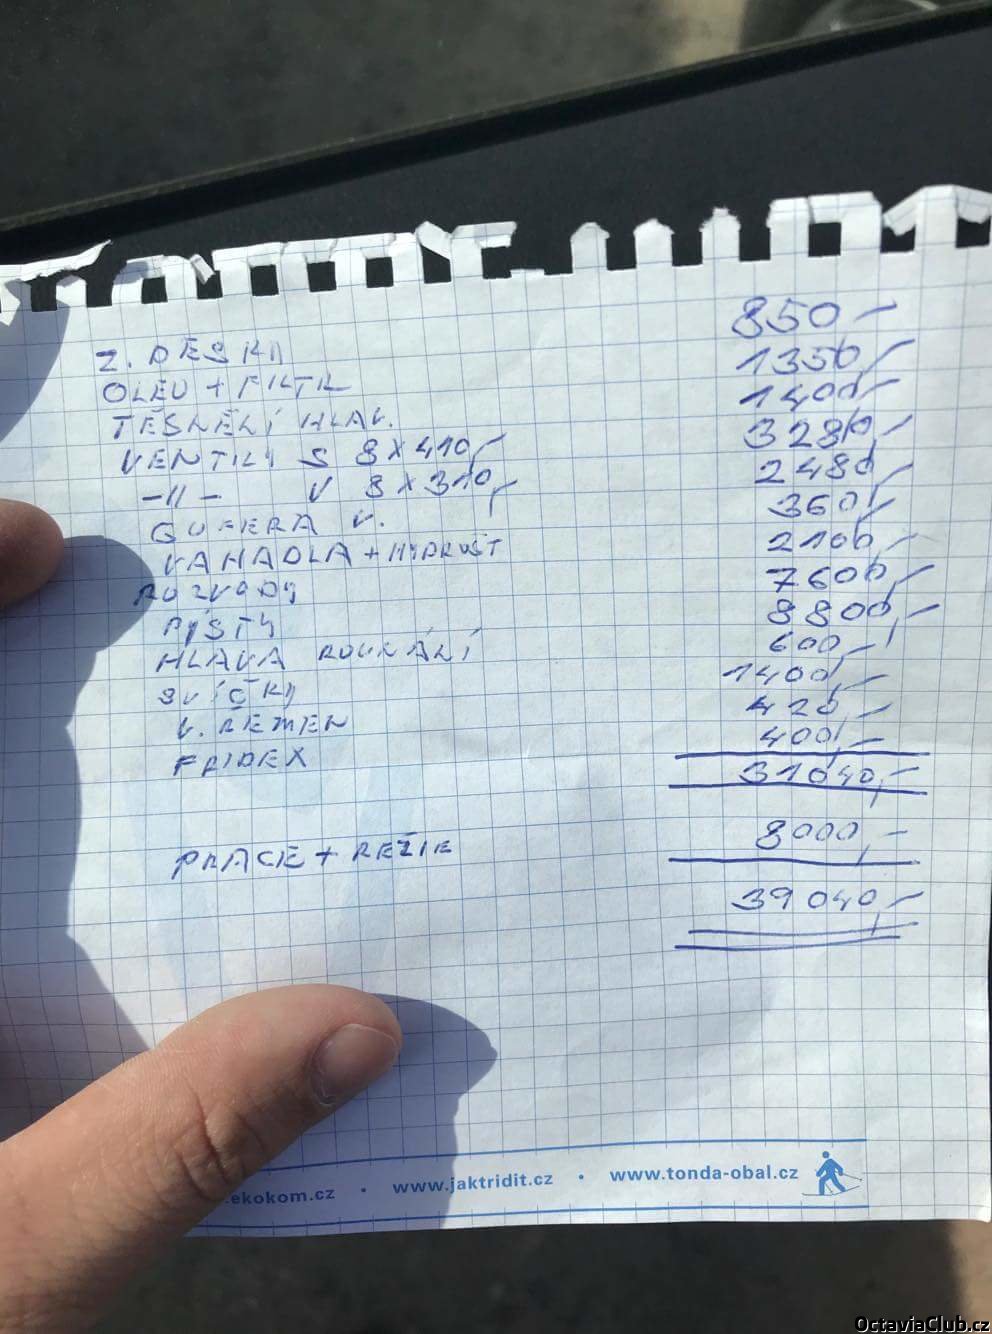 Z. DESKY 850,-
OLEJ + FILTR 1350,-
TĚSNĚNÍ HLAV. 1400,-
VENTILY S 8x410,- 3280,-
-11- V 8x310,- 2480,-
GUFERA V. 360,-
VAHADLA + HYDRUŠT 2100,-
ROZVODY 7600,-
PÍSTY 8800,-
HLAVA ROVNÁNÍ 600,-
SVÍČKY 1400,-
V. ŘEMEN 420,-
FRIDEX 400,-
31040,-
PRÁCE + REŽIE 8000,-
39040,-
.ekokom.cz • www.jaktridit.cz • www.tonda-obal.cz
OctaviaClub.cz